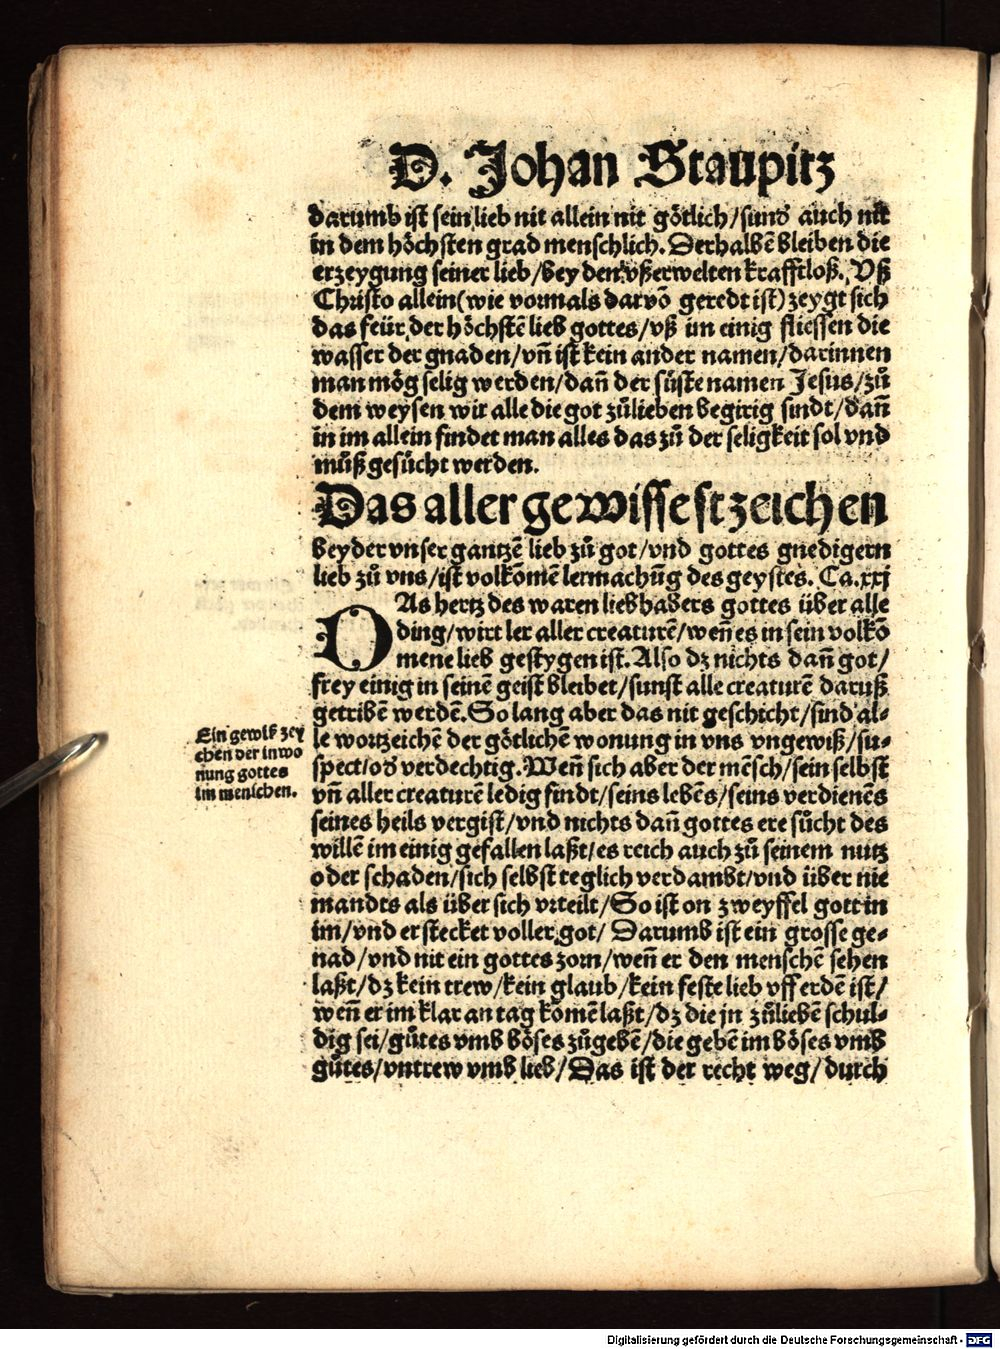 D. Johan Staupitz
darumb ist sein lieb nit allein nit götlich/sunđ auch nit
in dem höchsten grad menschlich. Derhalbē bleiben die
erzeygung seiner lieb/bey den vßerwelten krafftloß. Vß
Christo allein(wie vormals darvō geredt ist)zeygt sich
das feür der höchstē lieb gottes/vß im einig fliessen die
wasser der gnaden/vn̄ ist kein ander namen/darinnen
man mög selig werden/dan̄ der süste namen Jesus/zů
dem weysen wir alle die got zůlieben begirig sindt/dan̄
in im allein findet man alles das zů der seligkeit sol vnd
můß gesůcht werden.
Das aller gewissest zeichen
beyder vnser gantzē lieb zů got/vnd gottes gnedigern
lieb zů vns/ist volkōmē lermachūg des geystes. Ca.xxj
DAs hertz des waren liebhabers gottes über alle
ding/wirt ler aller creaturē/wen̄ es in sein volkō
mene lieb gestygen ist. Also dz nichts dan̄ got/
frey einig in seinē geist bleibet/sunst alle creaturē daruß
getribē werdē. So lang aber das nit geschicht/sind al⸗
le wortzeichē der götlichē wonung in vns vngewiß/su⸗
spect/ođ verdechtig. Wen̄ sich aber der mēsch/sein selbst
vn̄ aller creaturē ledig findt/seins lebēs/seins verdienēs
seines heils vergist/vnd nichts dan̄ gottes ere sůcht des
willē im einig gefallen laßt/es reich auch zů seinem nutz
oder schaden/sich selbst teglich verdambt/vnd über nie
mandts als über sich vrteilt/So ist on zweyffel gott in
im/vnd er stecket voller got/ Darumb ist ein grosse ge⸗
nad/vnd nit ein gottes zorn/wen̄ er den menschē sehen
laßt/dz kein trew/kein glaub/kein feste lieb vff erdē ist/
wen̄ er im klar an tag kōmē laßt/dz die jn zůliebē schul⸗
dig sei/gůtes vmb böses zůgebē/die gebē im böses vmb
gůtes/vntrew vmb lieb/Das ist der recht weg/durch
Ein gewiß zey
chen der inwo
nung gottes
im menschen.
Digitalisierung gefördert durch die Deutsche Forschungsgemeinschaft - DFG